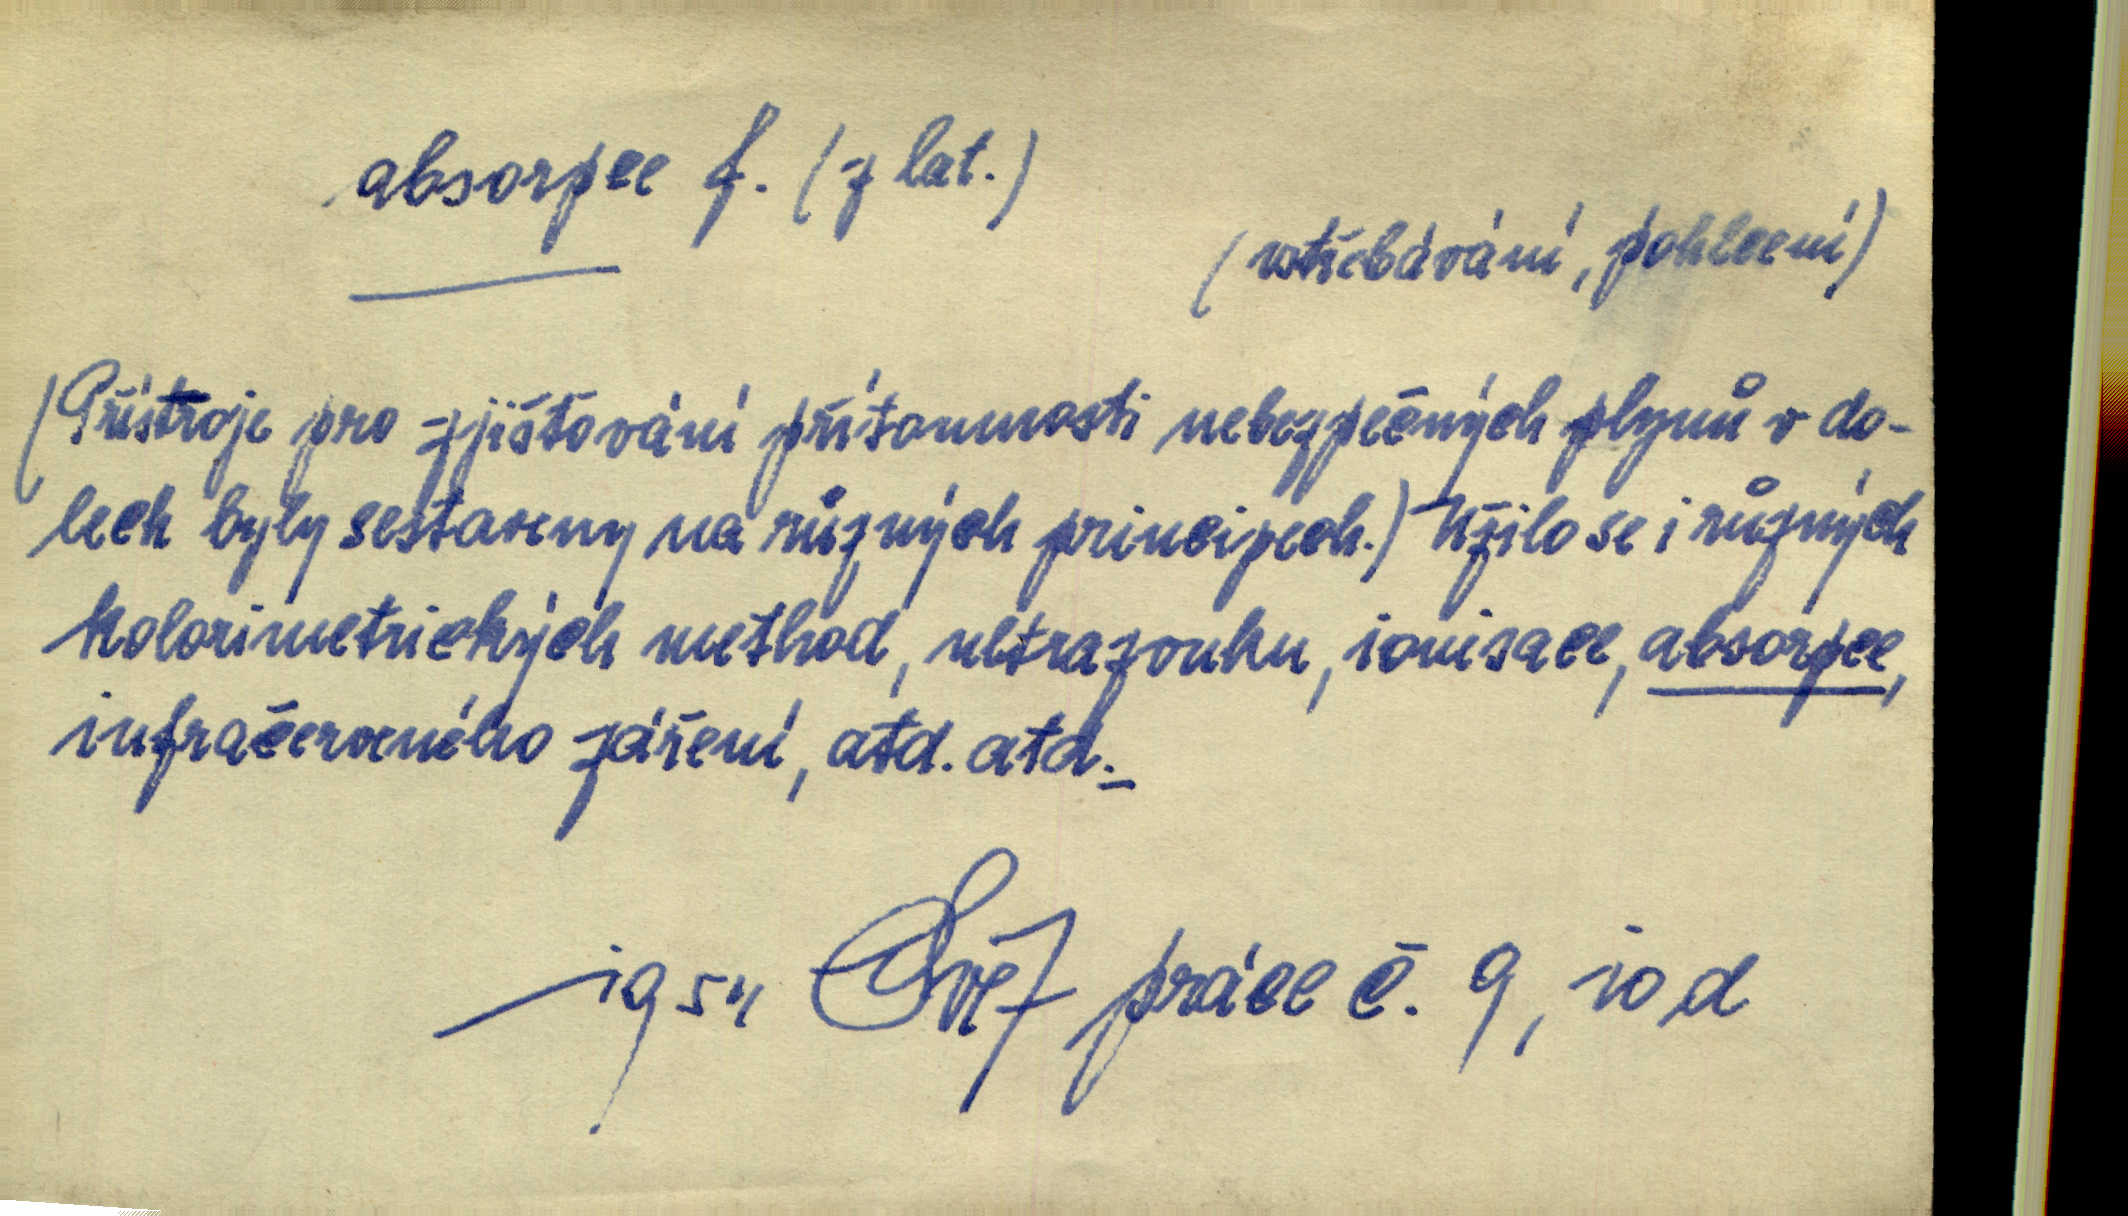 absorpce f. (z lat.)
(vstřebávání, pohlcení)
(Přístroje pro zjišťování přítomnosti nebezpečných plynů v do-
lech byly sestaveny na různých principech.) Užilo se i různých
kolorimetrických method, ultrazvuku, ionisace, absorpce,
infračerveného záření, atd. atd.
1954 Svět práce č. 9, 10 d